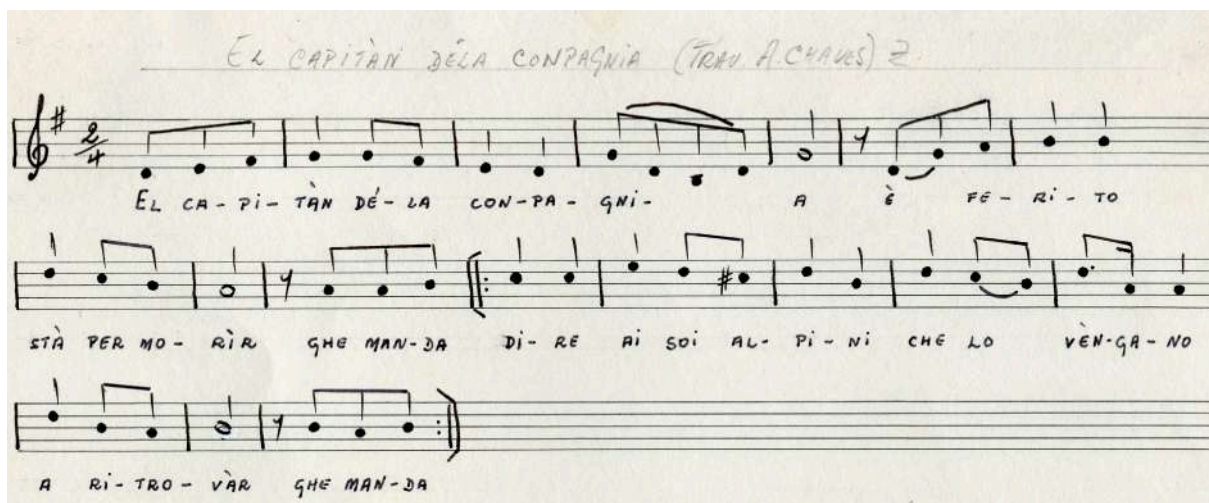 EL CAPITÀN DÉLA CONPAGNIA (TRAV. A. CHAVES) 2.
2/4
EL CA-PI-TÀN DÉ-LA CON-PA-GNI-A È FE-RI-TO
STÀ PER MO-RÌR GHE MAN-DA DI-RE AI SOI AL-PI-NI CHE LO VÈN-GA-NO
A RI-TRO-VÀR GHE MAN-DA